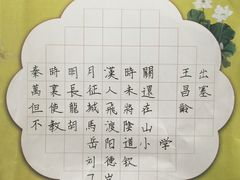 出塞
王昌齡
秦時明月漢時關
萬里長征人未還
但使龍城飛將在
不教胡馬渡陰山
岳陽道小学
刘德钦